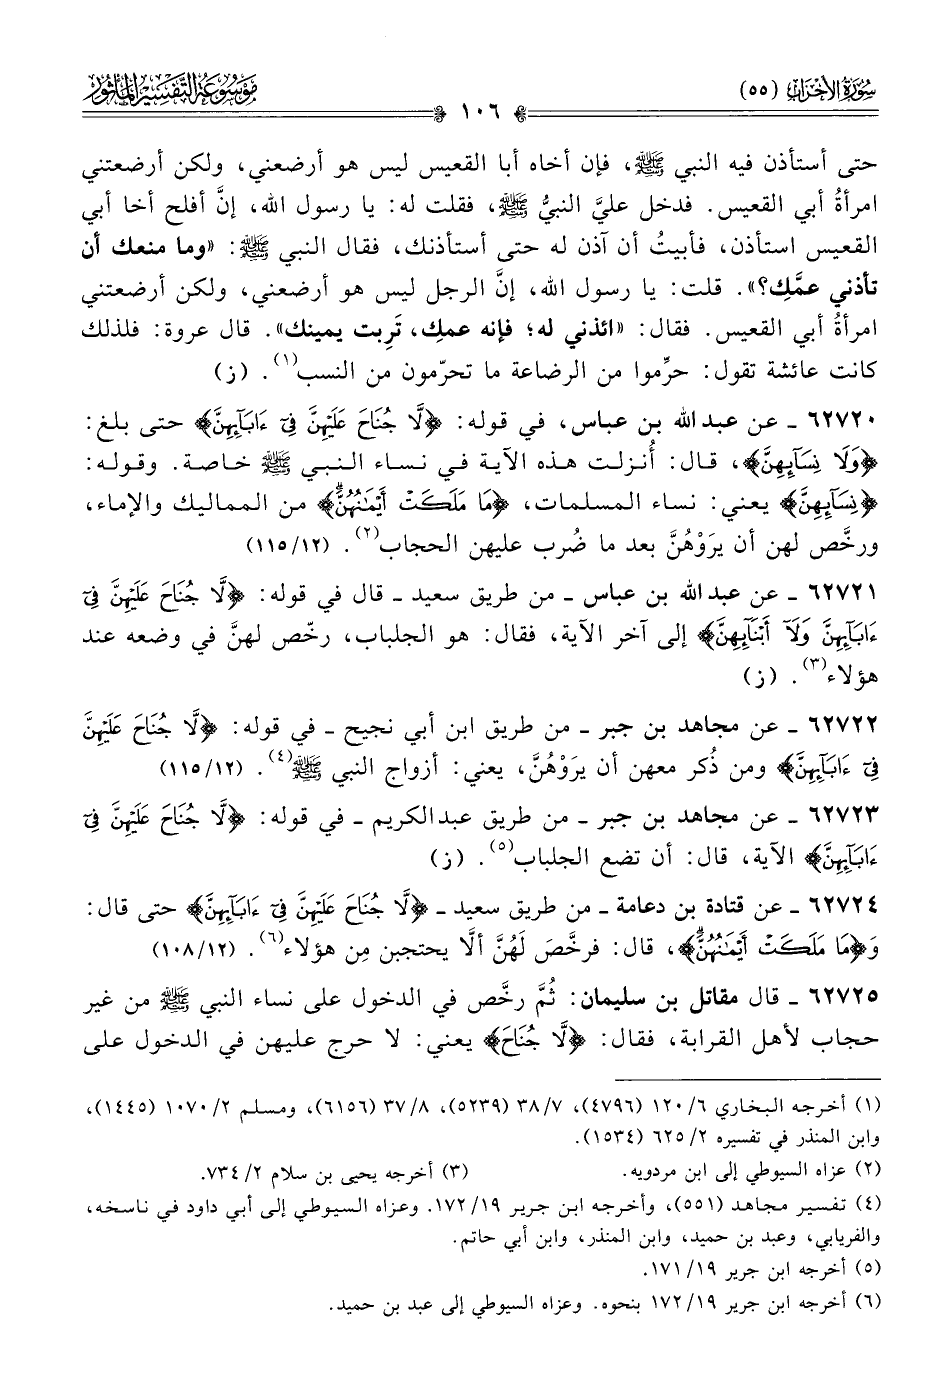 سُورَةُ الأَحْزَابِ (٥٥)
مَوْسُوعَةُ التَّفْسِيرِ المَأْثُورِ
١٠٦
حتى أستأذن فيه النبي ﷺ، فإن أخاه أبا القعيس ليس هو أرضعني، ولكن أرضعتني
امرأةُ أبي القعيس. فدخل عليَّ النبيُّ ﷺ، فقلت له: يا رسول الله، إنَّ أفلح أخا أبي
القعيس استأذن، فأبيتُ أن آذن له حتى أستأذنك، فقال النبي ﷺ: «وما منعك أن
تأذني عمَّكِ؟». قلت: يا رسول الله، إنَّ الرجل ليس هو أرضعني، ولكن أرضعتني
امرأةُ أبي القعيس. فقال: «ائذني له؛ فإنه عمكِ، تَرِبت يمينك». قال عروة: فلذلك
كانت عائشة تقول: حرِّموا من الرضاعة ما تحرّمون من النسب(١). (ز)
٦٢٧٢٠ ـ عن عبد الله بن عباس، في قوله: ﴿لَّا جُنَاحَ عَلَيْهِنَّ فِىٓ ءَابَآئِهِنَّ﴾ حتى بلغ:
﴿وَلَا نِسَآئِهِنَّ﴾، قال: أُنزلت هذه الآية في نساء النبي ﷺ خاصة. وقوله:
﴿نِسَآئِهِنَّ﴾ يعني: نساء المسلمات، ﴿مَا مَلَكَتْ أَيْمَٰنُهُنَّۗ﴾ من المماليك والإماء،
ورخَّص لهن أن يرَوْهُنَّ بعد ما ضُرب عليهن الحجاب(٢). (١١٥/١٢)
٦٢٧٢١ ـ عن عبد الله بن عباس ـ من طريق سعيد ـ قال في قوله: ﴿لَّا جُنَاحَ عَلَيْهِنَّ فِىٓ
ءَابَآئِهِنَّ وَلَآ أَبْنَآئِهِنَّ﴾ إلى آخر الآية، فقال: هو الجلباب، رخّص لهنَّ في وضعه عند
هؤلاء(٣). (ز)
٦٢٧٢٢ ـ عن مجاهد بن جبر ـ من طريق ابن أبي نجيح ـ في قوله: ﴿لَّا جُنَاحَ عَلَيْهِنَّ
فِىٓ ءَابَآئِهِنَّ﴾ ومن ذُكر معهن أن يرَوْهُنَّ، يعني: أزواج النبي ﷺ(٤). (١١٥/١٢)
٦٢٧٢٣ ـ عن مجاهد بن جبر ـ من طريق عبد الكريم ـ في قوله: ﴿لَّا جُنَاحَ عَلَيْهِنَّ فِىٓ
ءَابَآئِهِنَّ﴾ الآية، قال: أن تضع الجلباب(٥). (ز)
٦٢٧٢٤ ـ عن قتادة بن دعامة ـ من طريق سعيد ـ ﴿لَّا جُنَاحَ عَلَيْهِنَّ فِىٓ ءَابَآئِهِنَّ﴾ حتى قال:
وَ﴿مَا مَلَكَتْ أَيْمَٰنُهُنَّۗ﴾، قال: فرخَّصَ لَهُنَّ ألَّا يحتجبن مِن هؤلاء(٦). (١٠٨/١٢)
٦٢٧٢٥ ـ قال مقاتل بن سليمان: ثُمَّ رخَّص في الدخول على نساء النبي ﷺ من غير
حجاب لأهل القرابة، فقال: ﴿لَّا جُنَاحَ﴾ يعني: لا حرج عليهن في الدخول على
(١) أخرجه البخاري ٦/ ١٢٠ (٤٧٩٦)، ٧/ ٣٨ (٥٢٣٩)، ٨/ ٣٧ (٦١٥٦)، ومسلم ٢/ ١٠٧٠ (١٤٤٥)،
وابن المنذر في تفسيره ٢/ ٦٢٥ (١٥٣٤).
(٢) عزاه السيوطي إلى ابن مردويه.
(٣) أخرجه يحيى بن سلام ٢/ ٧٣٤.
(٤) تفسير مجاهد (٥٥١)، وأخرجه ابن جرير ١٩/ ١٧٢. وعزاه السيوطي إلى أبي داود في ناسخه،
والفريابي، وعبد بن حميد، وابن المنذر، وابن أبي حاتم.
(٥) أخرجه ابن جرير ١٩/ ١٧١.
(٦) أخرجه ابن جرير ١٩/ ١٧٢ بنحوه. وعزاه السيوطي إلى عبد بن حميد.